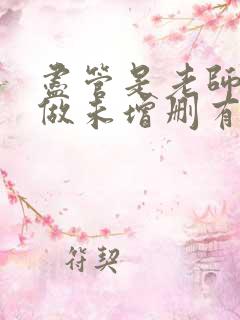 盡管是老師
做未增刪有
符契